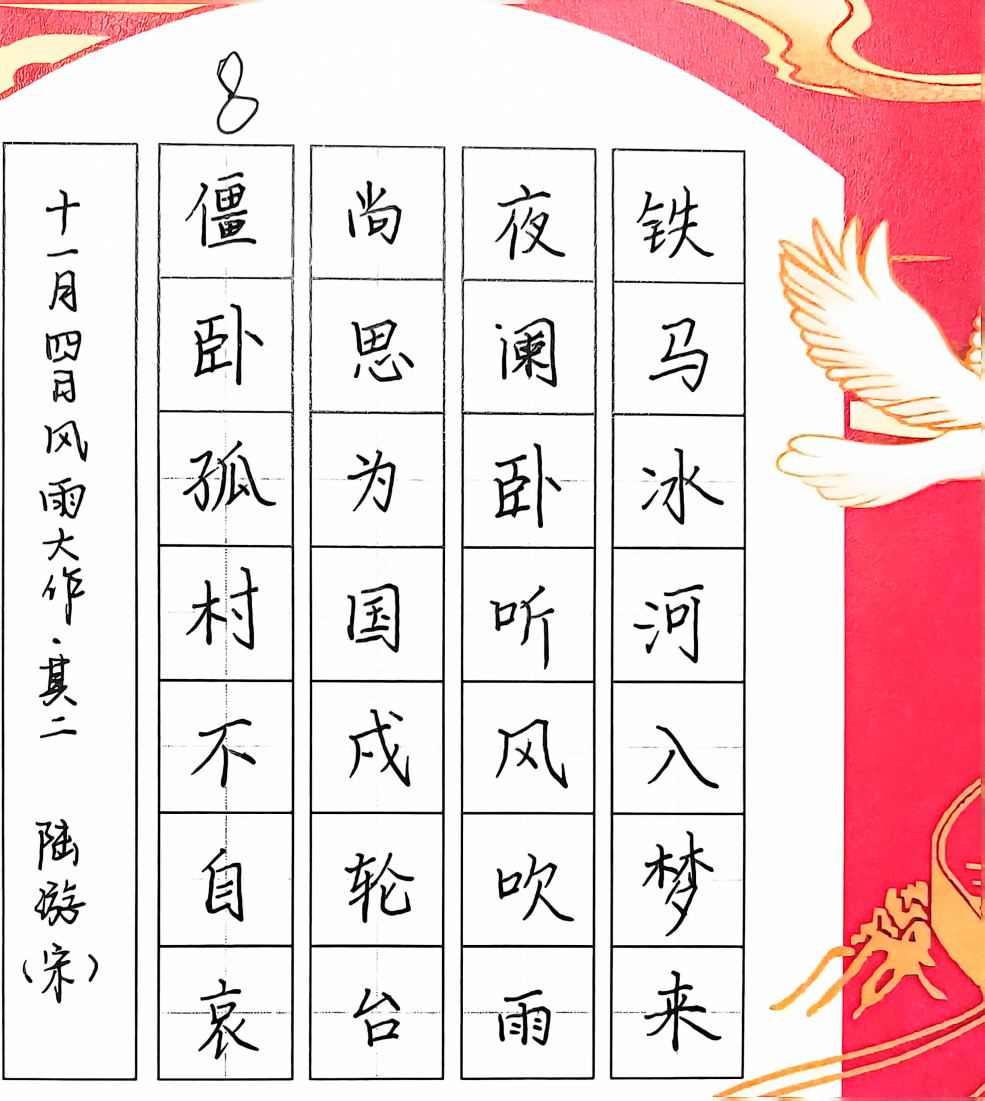 8
十一月四日风雨大作·其二 陆游（宋）
僵卧孤村不自哀
尚思为国戍轮台
夜阑卧听风吹雨
铁马冰河入梦来